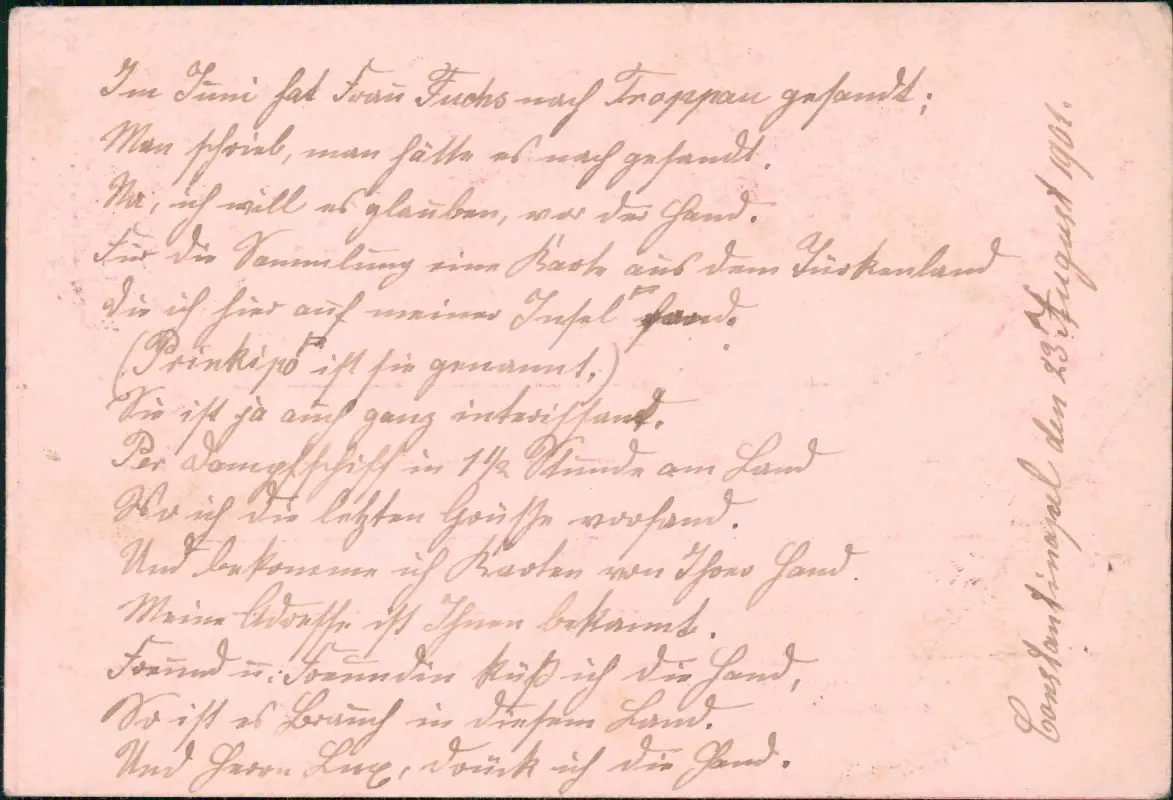 Im Juni hat Frau Fuchs nach Troppau gesandt;
Man schrieb, man hätte es nach gesandt.
Na, ich will es glauben, vor der Hand.
Für die Sammlung eine Karte aus dem Türkenland
die ich hier auf meiner Insel fand.
(Prinkipo ist sie genannt.)
Sie ist ja auch ganz interissant.
Per Dampfschiff in 1 1/2 Stunde am Land
Wo ich die letzten Grüße vorfand.
Und bekomme ich Karten von Ihrer Hand.
Meine Adresse ist Ihnen bekannt.
Freund u. Freundin küß ich die Hand,
So ist es Brauch in diesem Land.
Und Herrn Lux, drück ich die Hand.
Constantinopel den 23. August 1901.